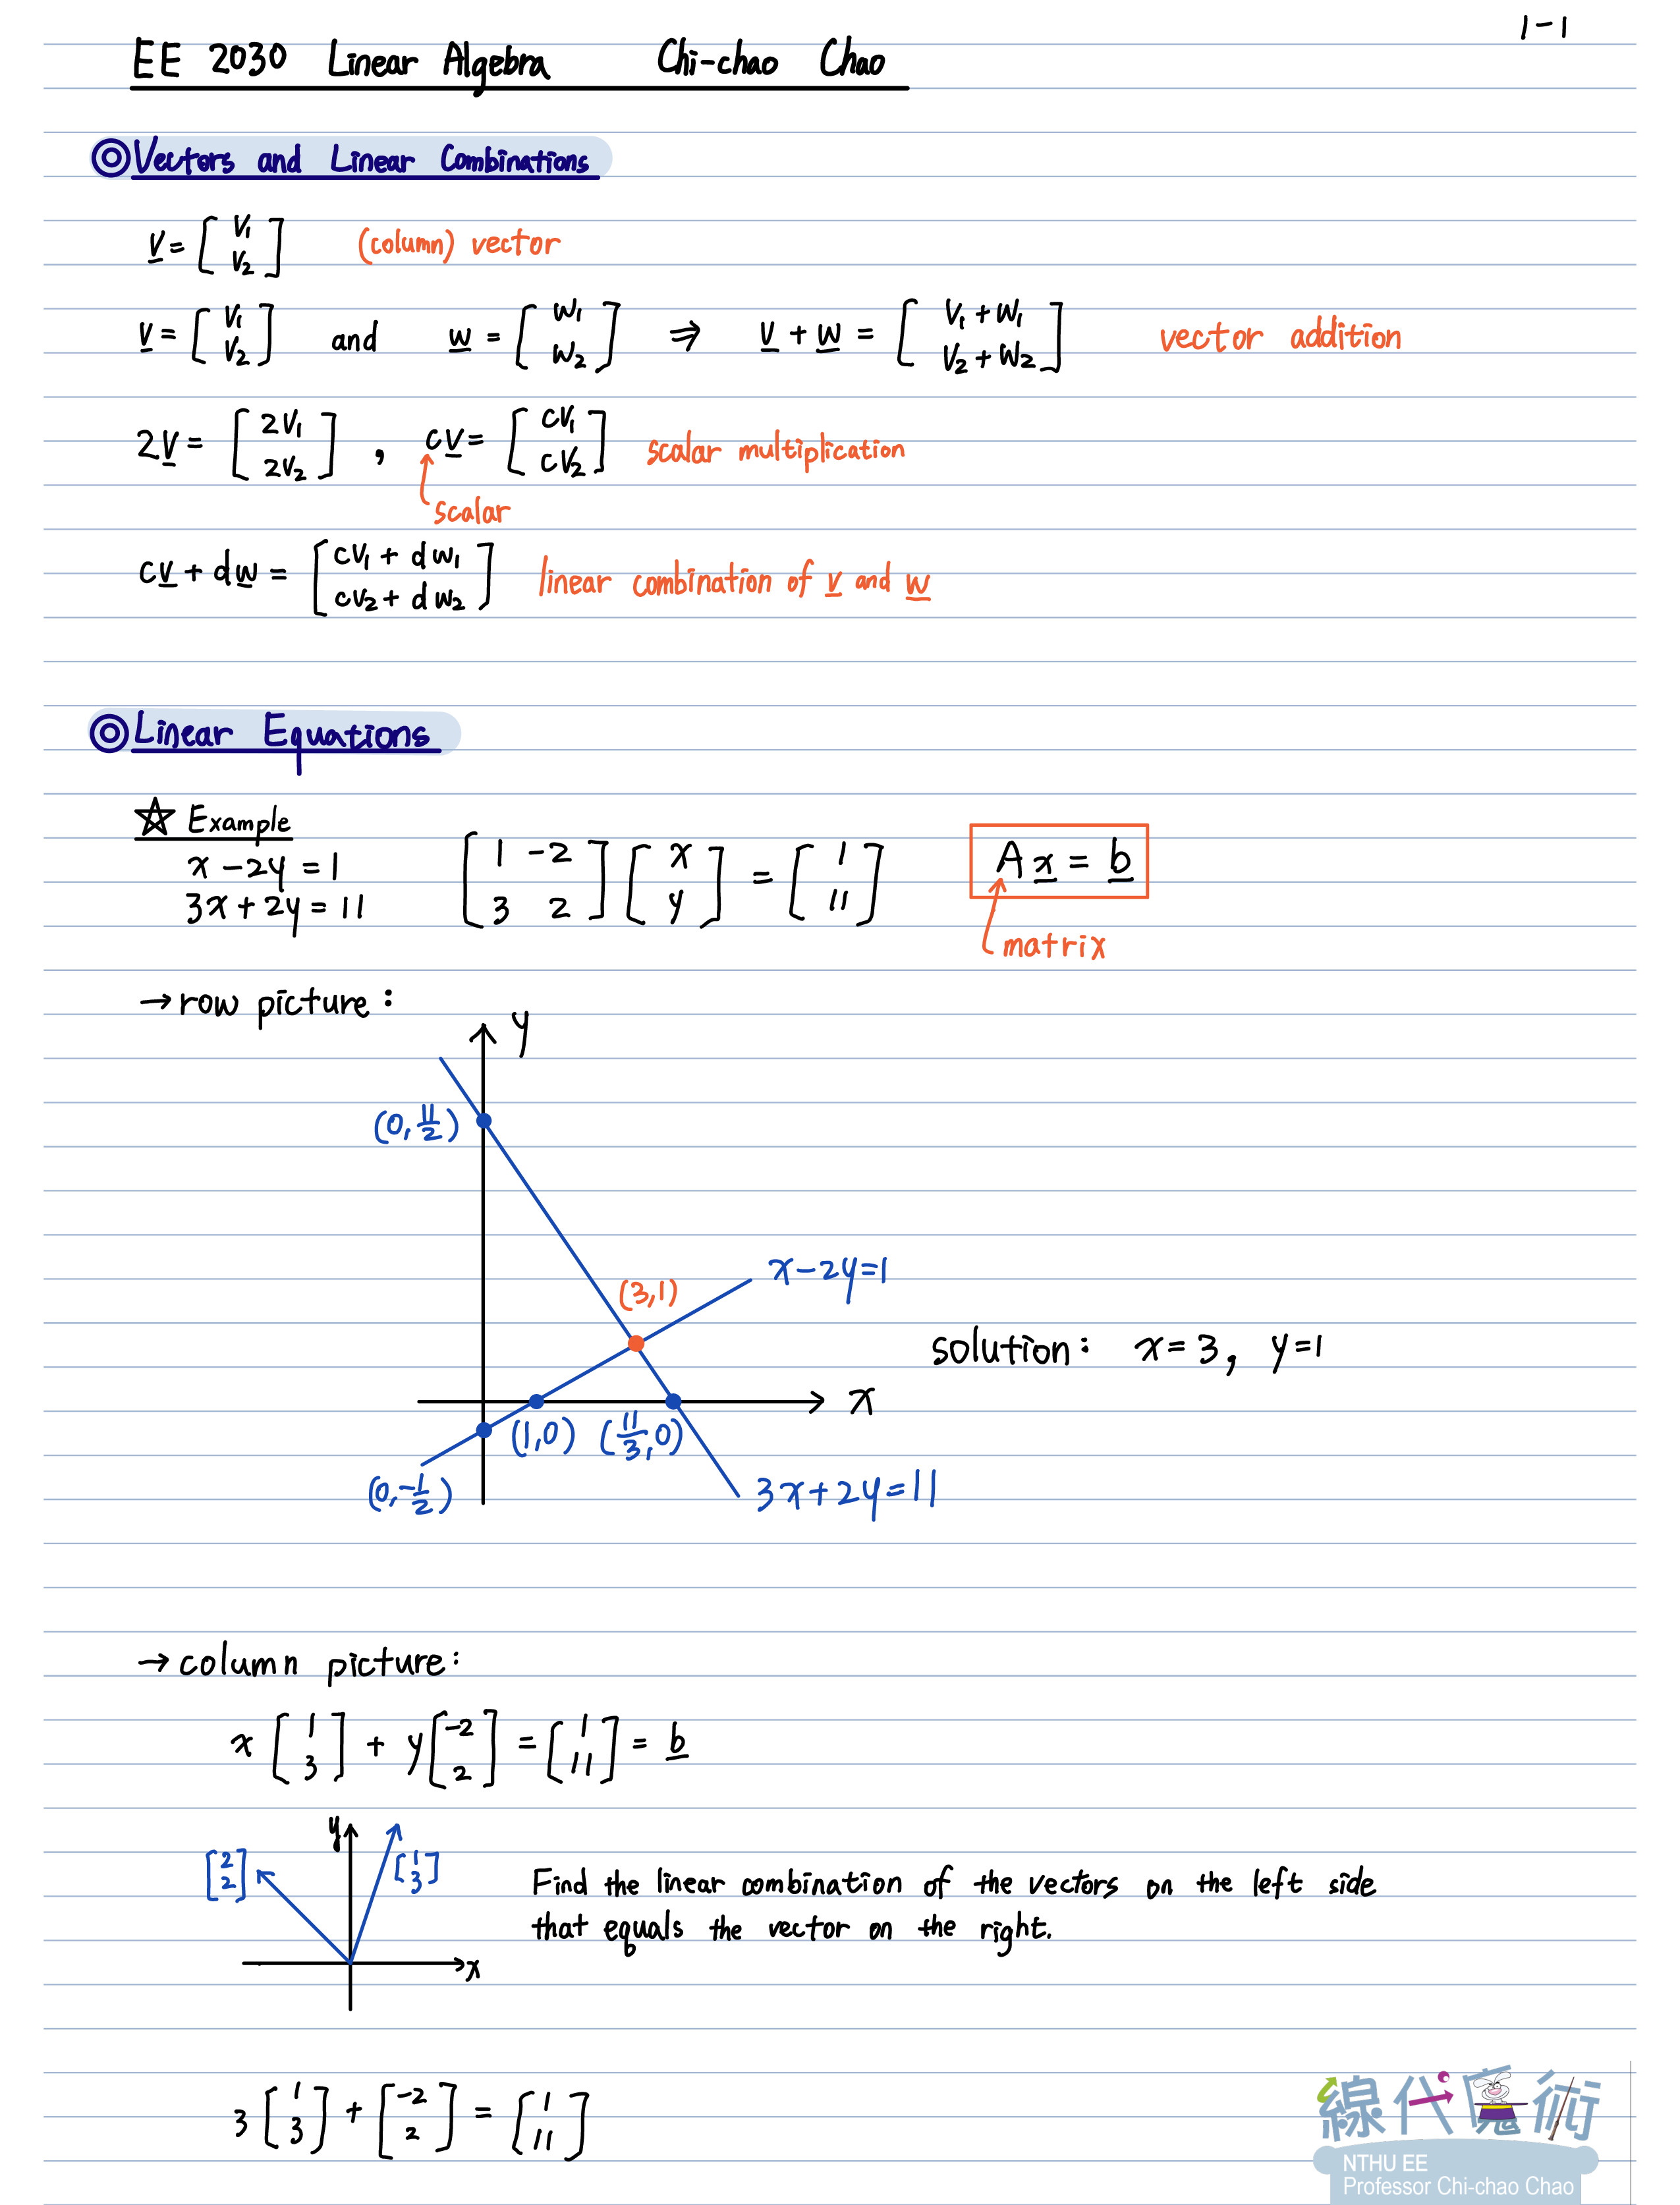 1-1
EE 2030 Linear Algebra Chi-chao Chao
◎ Vectors and Linear Combinations
v = [v₁; v₂] (column) vector
v = [v₁; v₂] and w = [w₁; w₂] ⇒ v + w = [v₁ + w₁; v₂ + w₂] vector addition
2v = [2v₁; 2v₂] , cv = [cv₁; cv₂] scalar multiplication
scalar
cv + dw = [cv₁ + dw₁; cv₂ + dw₂] linear combination of v and w
◎ Linear Equations
☆ Example
x - 2y = 1
3x + 2y = 11
[1 -2; 3 2] [x; y] = [1; 11]
Ax = b
matrix
→ row picture:
y
(0, 11/2)
x-2y=1
(3,1)
solution: x=3, y=1
x
(1,0) (11/3, 0)
(0, -1/2)
3x+2y=11
→ column picture:
x [1; 3] + y [-2; 2] = [1; 11] = b
y
[2; 2]
[1; 3]
x
Find the linear combination of the vectors on the left side
that equals the vector on the right.
3 [1; 3] + [-2; 2] = [1; 11]
線代魔術
NTHU EE
Professor Chi-chao Chao